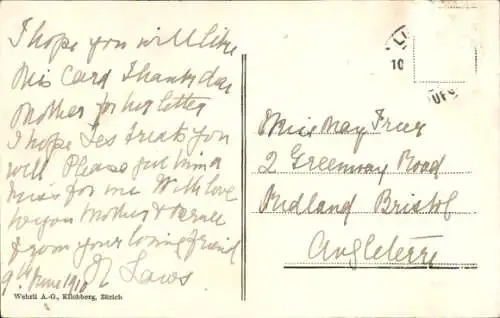 I hope you will like
this Card Thank dear
Mother for her letter
I hope Les treats you
well Please give him a
kiss for me With love
to you Mother &
from your loving friend
9th June 1910 N Laws
Wehrli A.-G., Kilchberg, Zürich
10
Miss May Frey
2 Greenway Road
Redland Bristol
Angleterre